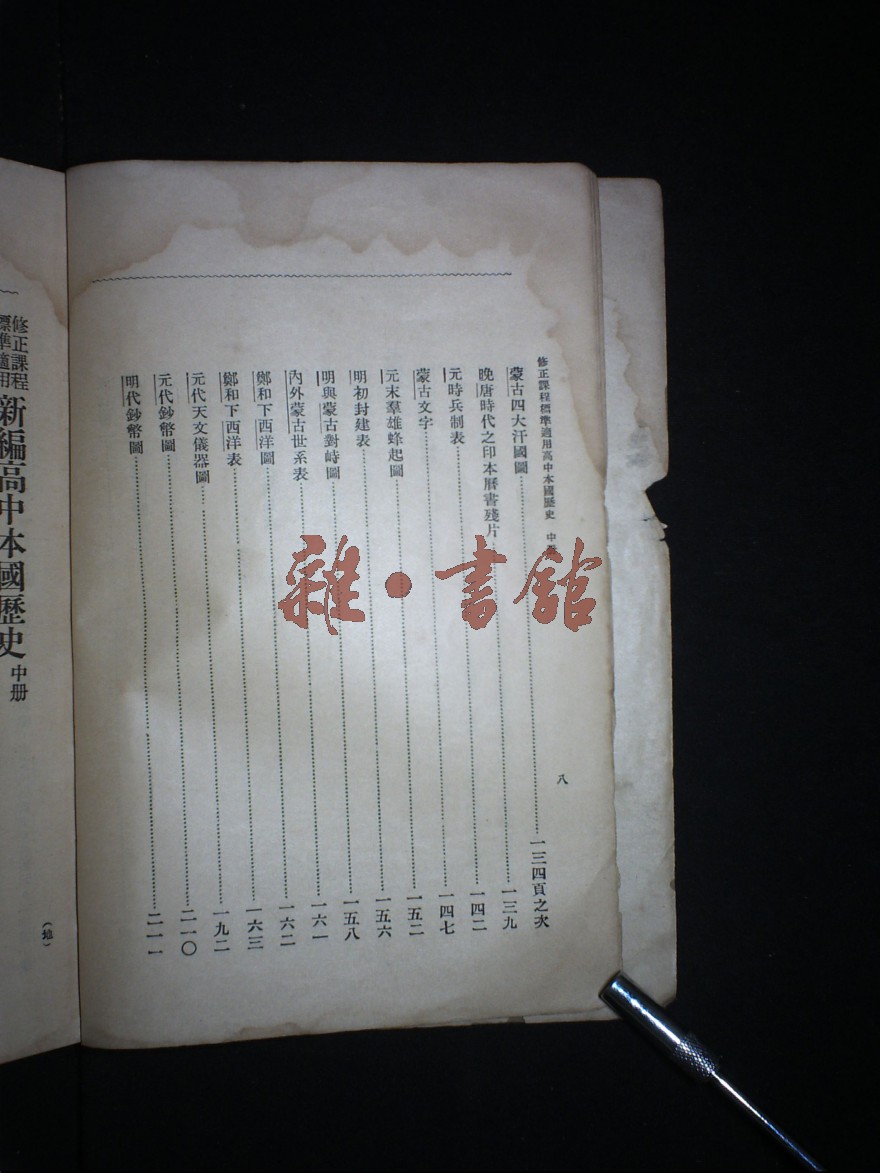 修正課程標準適用高中本國歷史 中
八
蒙古四大汗國圖……一三四頁之次
晚唐時代之印本曆書殘片……一三九
元時兵制表……一四二
蒙古文字……一四七
元末羣雄蜂起圖……一五二
明初封建表……一五六
明與蒙古對峙圖……一五八
內外蒙古世系表……一六一
鄭和下西洋圖……一六二
鄭和下西洋表……一六三
元代天文儀器圖……一九二
元代鈔幣圖……二一〇
明代鈔幣圖……二一一
修正課程
標準適用
新編高中本國歷史 中册
雜·書館